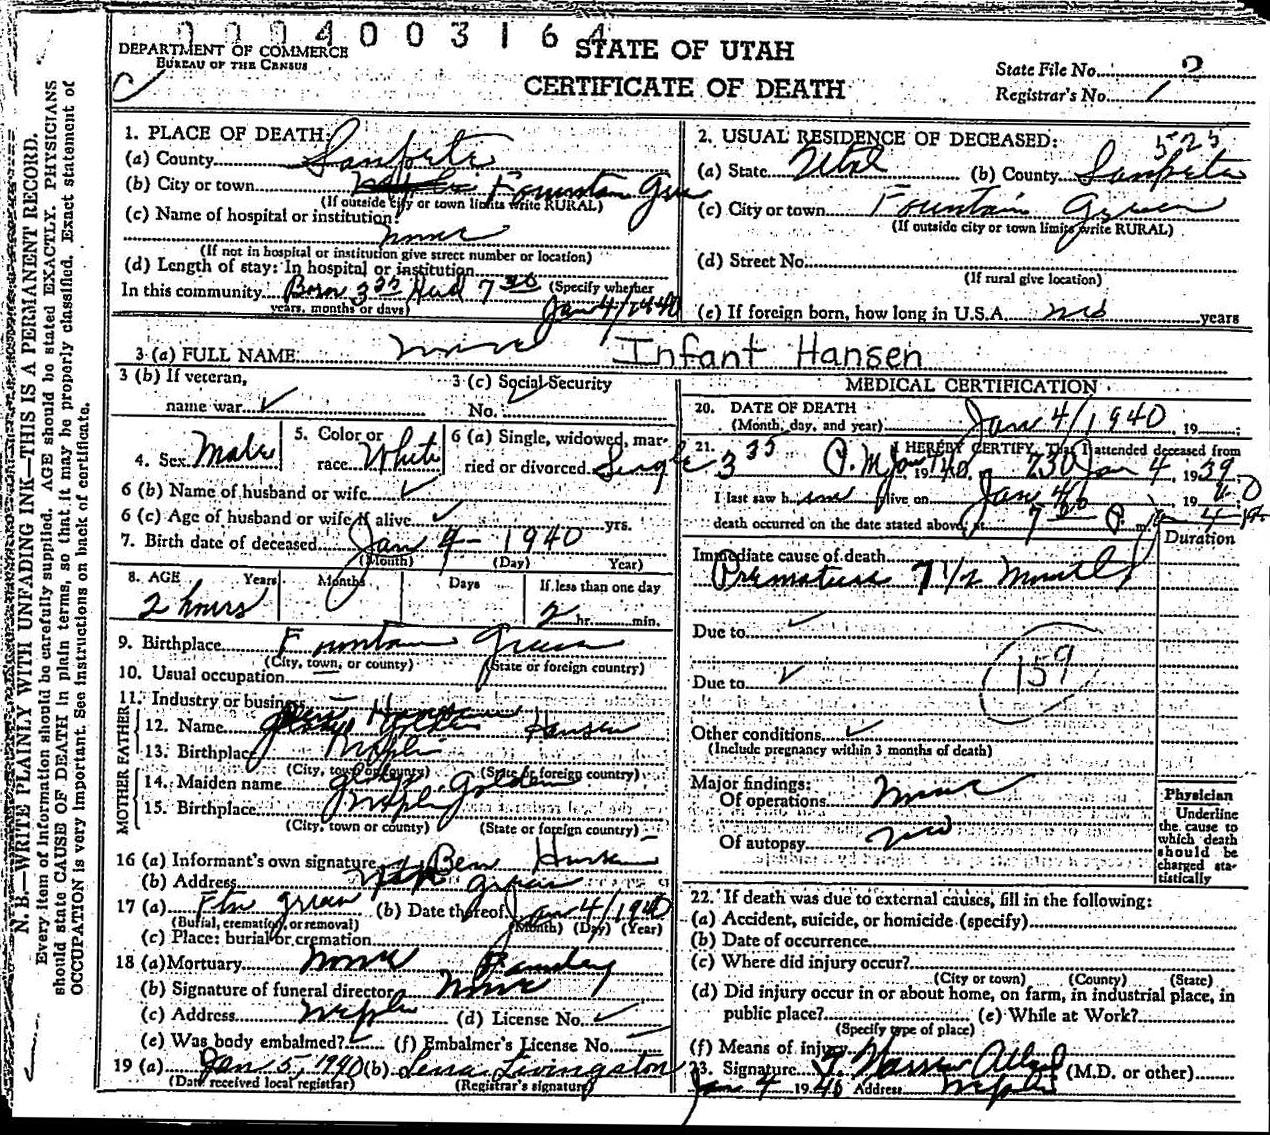 0004003164
DEPARTMENT OF COMMERCE
BUREAU OF THE CENSUS
STATE OF UTAH
CERTIFICATE OF DEATH
State File No. 2
Registrar's No. 1
N. B.—WRITE PLAINLY WITH UNFADING INK—THIS IS A PERMANENT RECORD.
Every item of information should be carefully supplied. AGE should be stated EXACTLY. PHYSICIANS
should state CAUSE OF DEATH in plain terms, so that it may be properly classified. Exact statement of
OCCUPATION is very important. See instructions on back of certificate.
1. PLACE OF DEATH:
(a) County Sanpete
(b) City or town Fountain Green
(If outside city or town limits write RURAL)
(c) Name of hospital or institution:
none
(If not in hospital or institution give street number or location)
(d) Length of stay: In hospital or institution
In this community Born 3 35 Died 7 30 (Specify whether
years, months or days) Jan 4/1940
2. USUAL RESIDENCE OF DECEASED: 523
(a) State Utah (b) County Sanpete
(c) City or town Fountain Green
(If outside city or town limits write RURAL)
(d) Street No.
(If rural give location)
(e) If foreign born, how long in U.S.A. no years
3 (a) FULL NAME none Infant Hansen
3 (b) If veteran,
name war
3 (c) Social Security
No.
4. Sex Male
5. Color or
race White
6 (a) Single, widowed, mar-
ried or divorced Single
6 (b) Name of husband or wife
6 (c) Age of husband or wife if alive yrs.
7. Birth date of deceased Jan 4 - 1940
(Month) (Day) Year)
8. AGE Years Months Days If less than one day
2 hours 2 hr. min.
9. Birthplace Fountain Green
(City, town, or county) (State or foreign country)
10. Usual occupation
11. Industry or business
FATHER
12. Name Hansen
13. Birthplace Nephi
(City, town or county) (State or foreign country)
MOTHER
14. Maiden name Gladys Golden
15. Birthplace Nephi
(City, town or county) (State or foreign country)
16 (a) Informant's own signature Ben Hansen
(b) Address Green
17 (a) Ftn Green (b) Date thereof Jan 4/1940
(Burial, cremation, or removal) (Month) (Day) (Year)
(c) Place: burial or cremation
18 (a) Mortuary none
(b) Signature of funeral director none
(c) Address Nephi (d) License No.
(e) Was body embalmed? (f) Embalmer's License No.
19 (a) Jan 5, 1940 (b) Lena Livingston
(Date received local registrar) (Registrar's signature)
MEDICAL CERTIFICATION
20. DATE OF DEATH
(Month, day, and year) Jan 4/1940, 19
21. I HEREBY CERTIFY, That I attended deceased from
3 35 P.M Jan 1940, 730 Jan 4, 1939
I last saw h alive on Jan 4 1940
death occurred on the date stated above, at 7 P. m.
Duration
Immediate cause of death
Premature 7 1/2 Months
Due to
159
Due to
Other conditions
(Include pregnancy within 3 months of death)
Major findings:
Of operations none
Of autopsy no
Physician
Underline
the cause to
which death
should be
charged sta-
tistically
22. If death was due to external causes, fill in the following:
(a) Accident, suicide, or homicide (specify)
(b) Date of occurrence
(c) Where did injury occur?
(City or town) (County) (State)
(d) Did injury occur in or about home, on farm, in industrial place, in
public place? (e) While at Work?
(Specify type of place)
(f) Means of injury
23. Signature (M.D. or other)
Jan 4 1940 Address Nephi